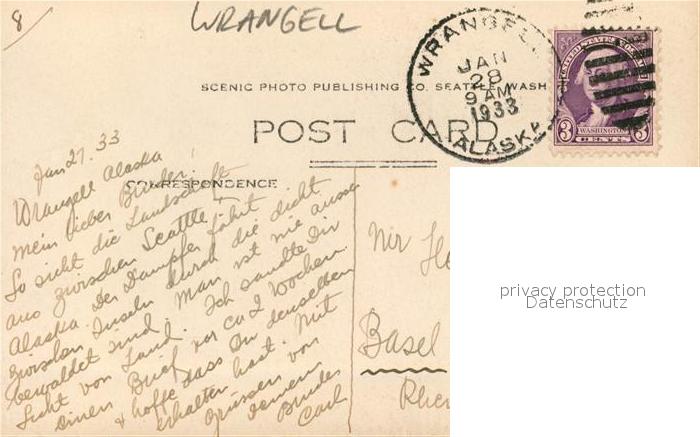 8/
WRANGELL
WRANGELL
JAN
28
9 AM
1933
ALASKA
UNITED STATES POSTAGE
3 WASHINGTON 3
CENTS
SCENIC PHOTO PUBLISHING CO. SEATTLE, WASH
POST CARD
CORRESPONDENCE
Jan 27. 33
Wrangell Alaska
Mein lieber Bruder!
So sieht die Landschaft
aus zwischen Seattle &
Alaska. Der Dampfer fährt
zwischen Inseln durch die dicht
bewaldet sind. Man ist nie ausser
Sicht von Land. Ich sandte Dir
einen Brief vor ca 2 Wochen.
& hoffe dass Du denselben
erhalten hast. Mit
Grüssen von
Deinem
Bruder
Carl
Basel
privacy protection
Datenschutz